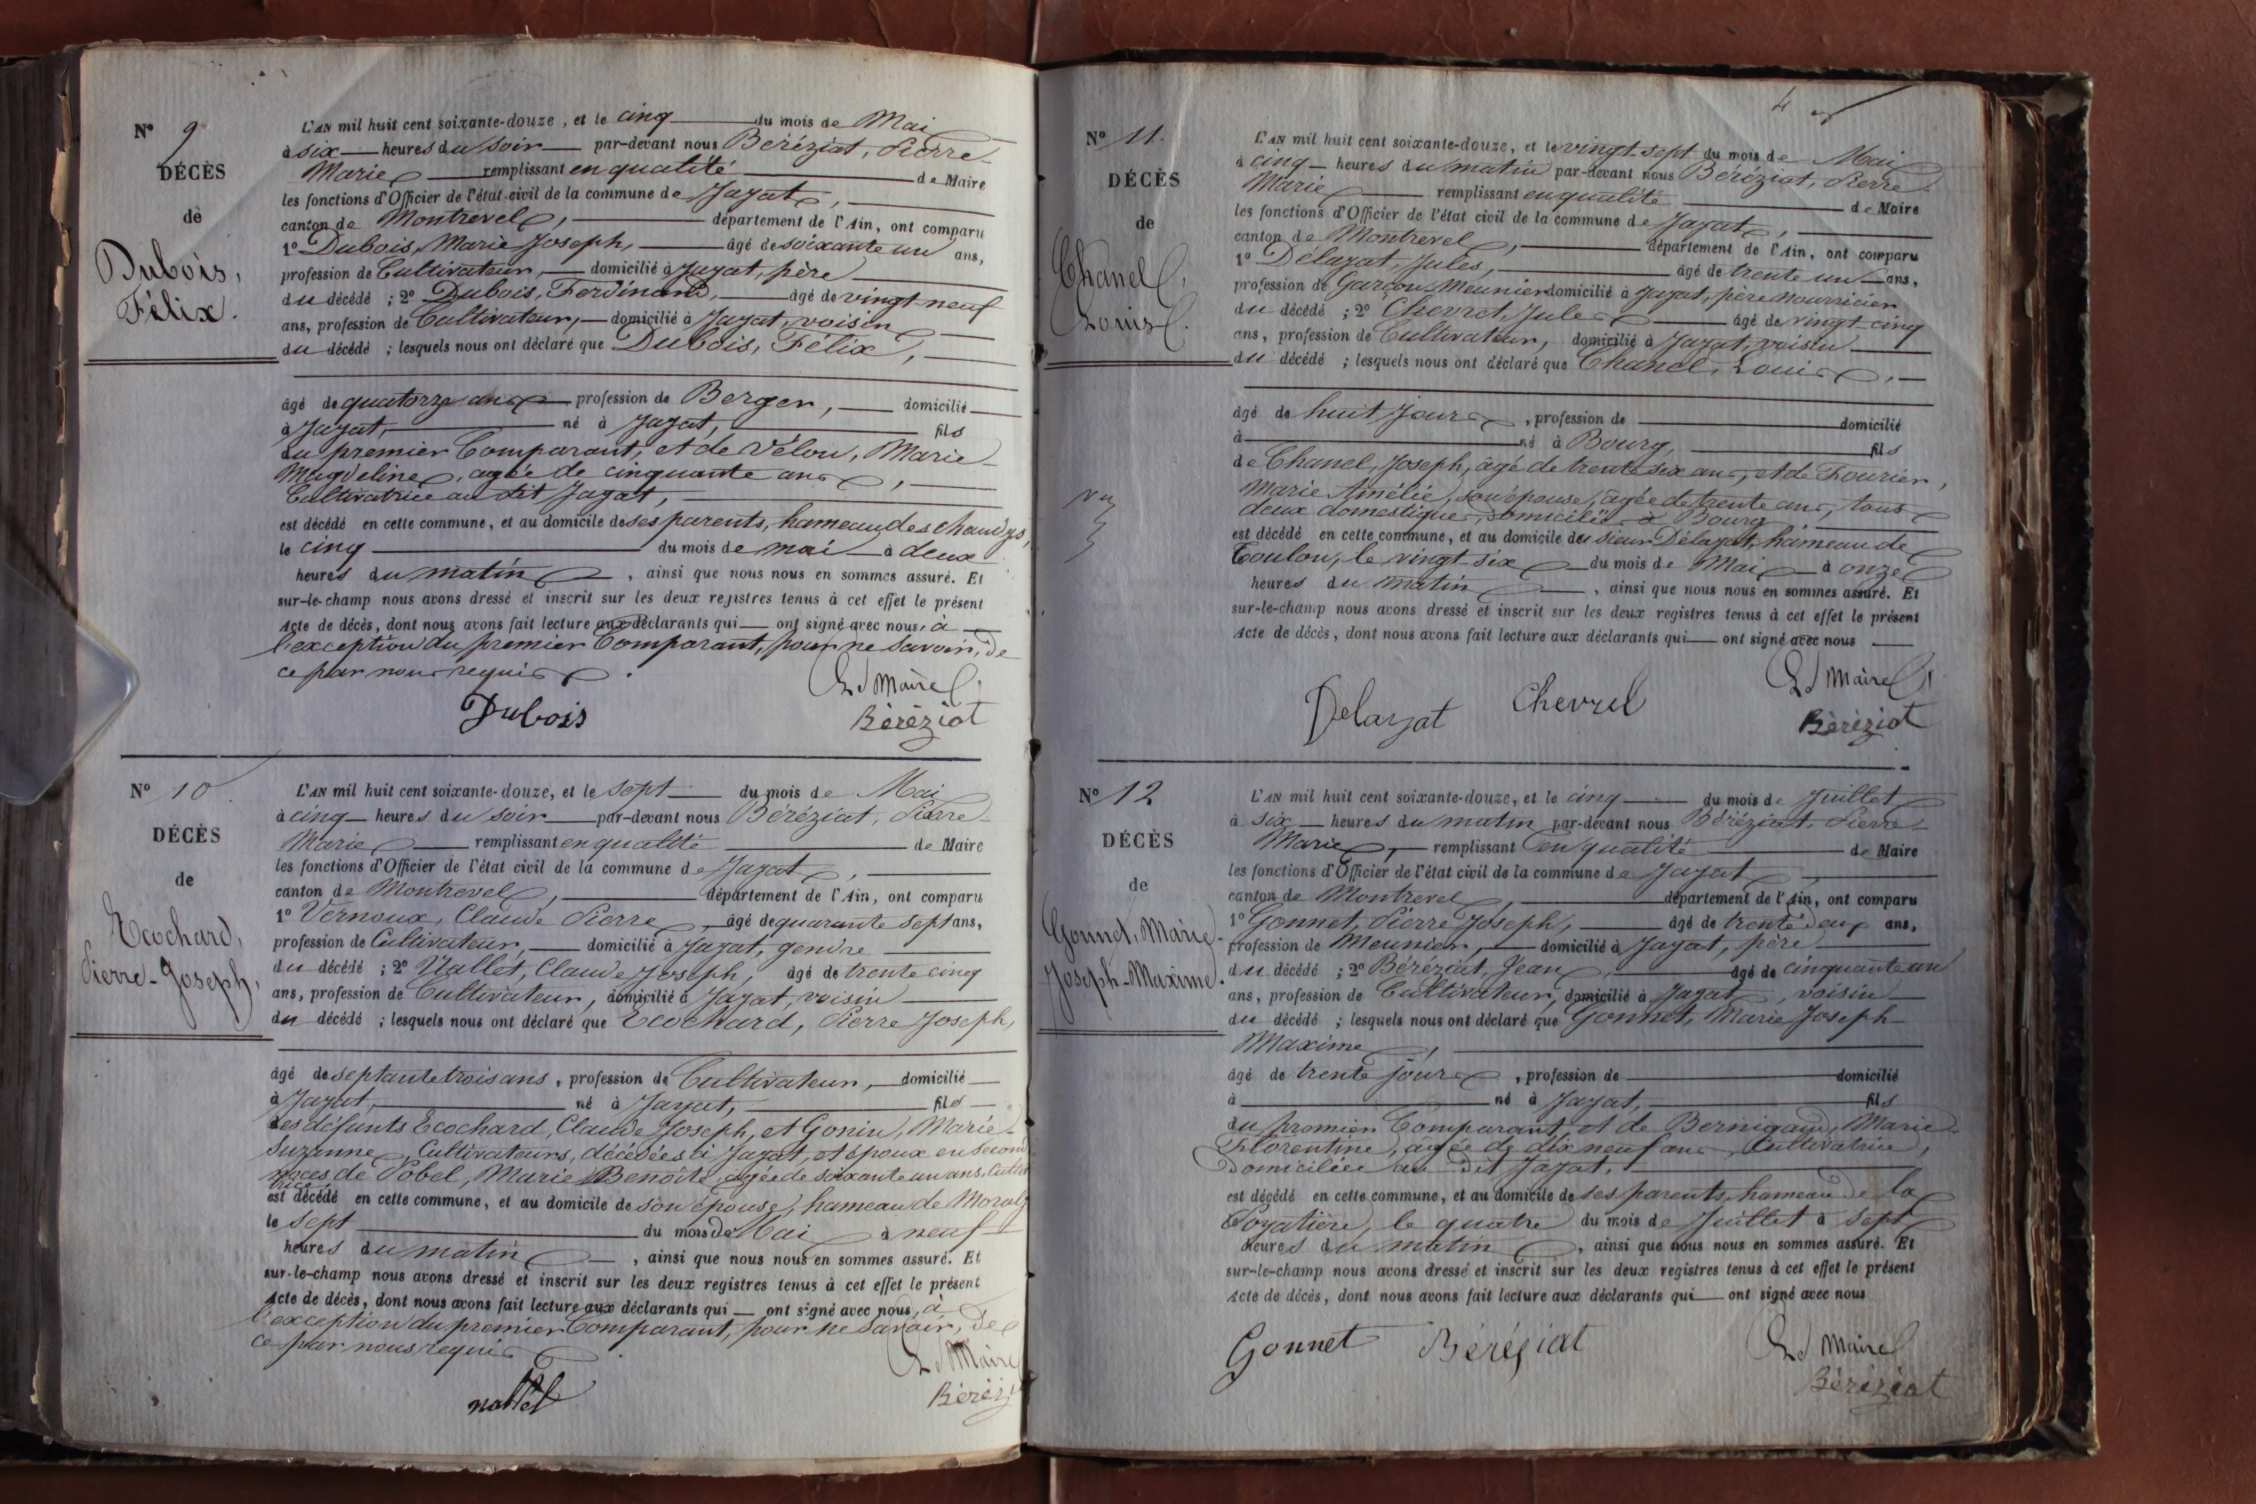 Nº 9
DÉCÈS
de
Dubois,
Félix.
L'AN mil huit cent soixante-douze, et le cinq du mois de Mai
à six heures du soir par-devant nous Béréziat, Pierre
Marie remplissant en qualité de Maire
les fonctions d'Officier de l'état civil de la commune de Jayat,
canton de Montrevel, département de l'Ain, ont comparu
1º Dubois, Marie Joseph, âgé de soixante un ans,
profession de Cultivateur, domicilié à Jayat, père
du décédé ; 2º Dubois, Ferdinand, âgé de vingt neuf
ans, profession de Cultivateur, domicilié à Jayat, voisin
du décédé ; lesquels nous ont déclaré que Dubois, Félix,
âgé de quatorze ans profession de Berger, domicilié
à Jayat, né à Jayat, fils
du premier Comparant, et de Vélon, Marie
Magdeline, agée de cinquante ans,
Cultivatrice au dit Jayat,
est décédé en cette commune, et au domicile de ses parents, hameau des
le cinq du mois de mai à deux
heures du matin, ainsi que nous nous en sommes assuré. Et
sur-le-champ nous avons dressé et inscrit sur les deux registres tenus à cet effet le présent
Acte de décès, dont nous avons fait lecture aux déclarants qui ont signé avec nous, à
l'exception du premier Comparant, pour ne savoir, de
ce par nous requis.
Le Maire
Dubois Béréziat
Nº 10
DÉCÈS
de
Ecochard,
Pierre-Joseph,
L'AN mil huit cent soixante-douze, et le sept du mois de Mai
à cinq heures du soir par-devant nous Béréziat, Pierre
Marie remplissant en qualité de Maire
les fonctions d'Officier de l'état civil de la commune de Jayat,
canton de Montrevel, département de l'Ain, ont comparu
1º Vernoux, Claude Pierre, âgé de quarante sept ans,
profession de Cultivateur, domicilié à Jayat, gendre
du décédé ; 2º Nallet, Claude Joseph, âgé de trente cinq
ans, profession de Cultivateur, domicilié à Jayat, voisin
du décédé ; lesquels nous ont déclaré que Ecochard, Pierre Joseph,
âgé de septante trois ans, profession de Cultivateur, domicilié
à Jayat, né à Jayat, fils
des défunts Ecochard, Claude Joseph, et Gonin, Marie
Suzanne, Cultivateurs, décédés à Jayat, et époux en second
noces de Pobel, Marie Benoîte, agée de soixante un ans, Cultiva
trice
est décédé en cette commune, et au domicile de son épouse, hameau de
le sept du mois de Mai à neuf
heures du matin, ainsi que nous nous en sommes assuré. Et
sur-le-champ nous avons dressé et inscrit sur les deux registres tenus à cet effet le présent
Acte de décès, dont nous avons fait lecture aux déclarants qui ont signé avec nous, à
l'exception du premier Comparant, pour ne savoir, de
ce par nous requis.
Le Maire
nallet Béréz
4
Nº 11.
DÉCÈS
de
Chanel,
Louis.
vu
L'AN mil huit cent soixante-douze, et le vingt sept du mois de Mai
à cinq heures du matin par-devant nous Béréziat, Pierre
Marie remplissant en qualité de Maire
les fonctions d'Officier de l'état civil de la commune de Jayat,
canton de Montrevel, département de l'Ain, ont comparu
1º Délayat, Jules, âgé de trente un ans,
profession de Garçon Meunier domicilié à Jayat, père nourricier
du décédé ; 2º Chevrel, Jules âgé de vingt cinq
ans, profession de Cultivateur, domicilié à Jayat, voisin
du décédé ; lesquels nous ont déclaré que Chanel, Louis,
âgé de huit jours, profession de domicilié
à né à Bourg, fils
de Chanel, Joseph, âgé de trente six ans, et de Fourier,
Marie Amélie, son épouse, âgée de trente ans, tous
deux domestiques, domiciliés à Bourg,
est décédé en cette commune, et au domicile du sieur Délayat, hameau de
Toulon, le vingt six du mois de Mai à onze
heures du matin, ainsi que nous nous en sommes assuré. Et
sur-le-champ nous avons dressé et inscrit sur les deux registres tenus à cet effet le présent
Acte de décès, dont nous avons fait lecture aux déclarants qui ont signé avec nous
Le Maire
Delayat Chevrel Béréziat
Nº 12
DÉCÈS
de
Gonnet, Marie-
Joseph-Maxime.
L'AN mil huit cent soixante-douze, et le cinq du mois de Juillet
à six heures du matin par-devant nous Béréziat, Pierre
Marie, remplissant en qualité de Maire
les fonctions d'Officier de l'état civil de la commune de Jayat,
canton de Montrevel, département de l'Ain, ont comparu
1º Gonnet, Pierre Joseph, âgé de trente deux ans,
profession de Meunier, domicilié à Jayat, père
du décédé ; 2º Béréziat, Jean, âgé de cinquante un
ans, profession de Cultivateur, domicilié à Jayat, voisin
du décédé ; lesquels nous ont déclaré que Gonnet, Marie Joseph
Maxime,
âgé de trente jours, profession de domicilié
à né à Jayat, fils
du premier Comparant, et de Bernigaud, Marie
Florentine, âgée de dix neuf ans, Cultivatrice,
domiciliée au dit Jayat,
est décédé en cette commune, et au domicile de ses parents, hameau de la
le quatre du mois de Juillet à sept
heures du matin, ainsi que nous nous en sommes assuré. Et
sur-le-champ nous avons dressé et inscrit sur les deux registres tenus à cet effet le présent
Acte de décès, dont nous avons fait lecture aux déclarants qui ont signé avec nous
Le Maire
Gonnet Béréziat Béréziat